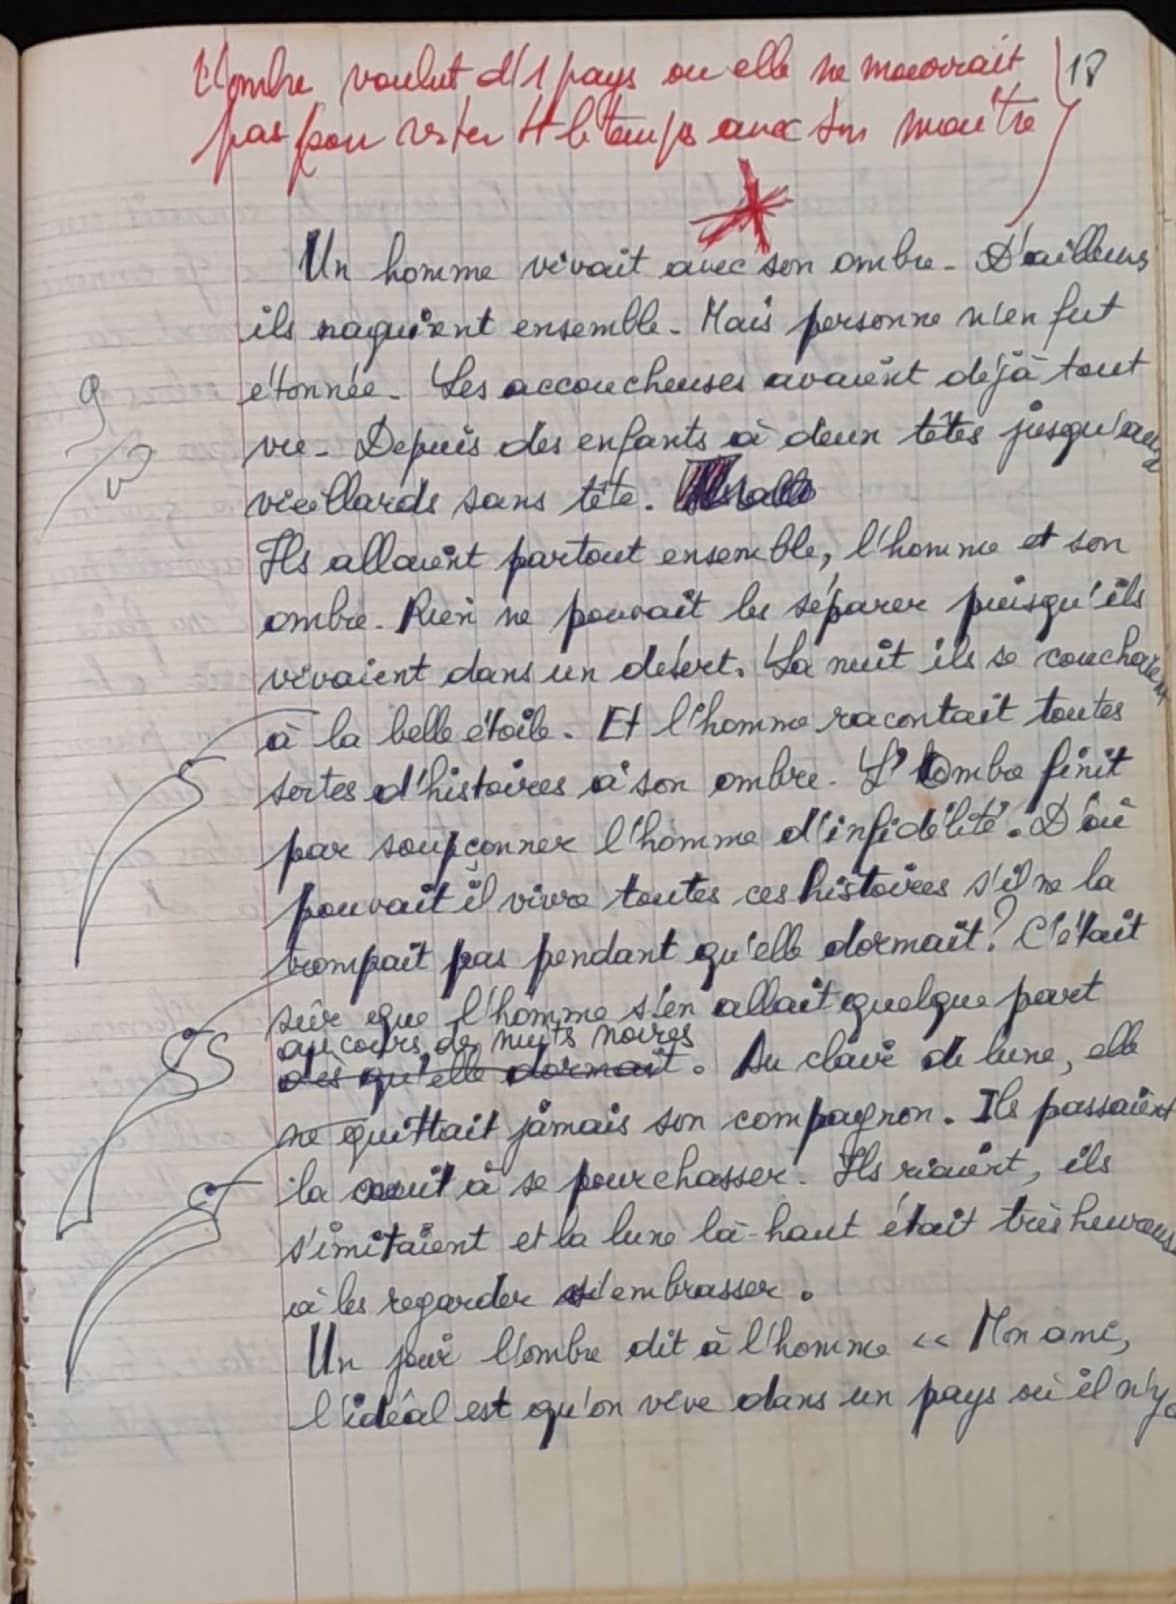 L'ombre voulut d'1 pays où elle ne mourrait
pas pour rester tt le temps avec son maître
18
Un homme vivait avec son ombre. D'ailleurs
ils naquirent ensemble. Mais personne n'en fut
étonnée. Les accoucheuses avaient déjà tout
vu. Depuis des enfants à deux têtes jusqu'aux
vieillards sans tête.
Ils allaient partout ensemble, l'homme et son
ombre. Rien ne pouvait les séparer puisqu'ils
vivaient dans un désert. La nuit ils se couchaient
à la belle étoile. Et l'homme racontait toutes
sortes d'histoires à son ombre. L'ombre finit
par soupçonner l'homme d'infidélité. D'où
pouvait il vivre toutes ces histoires s'il ne la
trompait pas pendant qu'elle dormait? C'était
sûr que l'homme s'en allait quelque part
au cours des nuits noires
dès qu'elle dormait. Au clair de lune, elle
ne quittait jamais son compagnon. Ils passaient
la nuit à se pourchasser. Ils riaient, ils
s'imitaient et la lune là-haut était très heureuse
à les regarder s'embrasser.
Un jour l'ombre dit à l'homme << Mon ami,
l'idéal est qu'on vive dans un pays où il n'y a